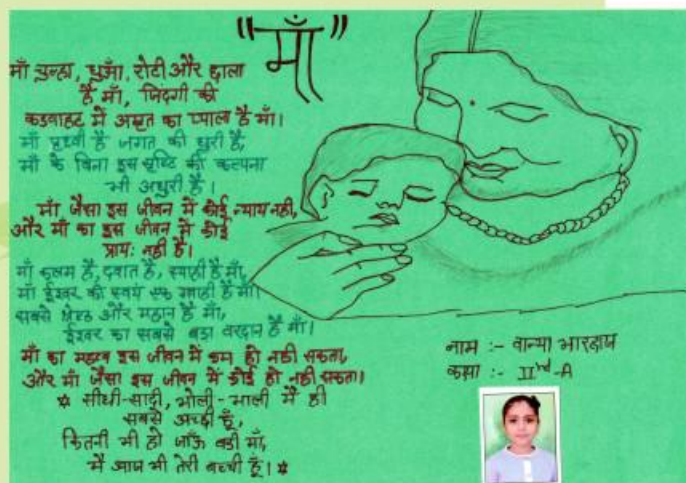 "माँ"
माँ चुल्हा, धुआँ, रोटी और छाला
है माँ, जिंदगी की
कडवाहट में अमृत का प्याला है माँ।
माँ पृथ्वी है जगत की धुरी है,
माँ के बिना इस सृष्टि की कल्पना
भी अधुरी है।
माँ जैसा इस जीवन में कोई न्याय नही,
और माँ का इस जीवन में कोई
प्राय: नही है।
माँ कलम है, दवात है, स्याही है माँ,
माँ ईश्वर की स्वयं एक गवाही है माँ।
सबसे श्रेष्ठ और महान है माँ,
ईश्वर का सबसे बड़ा वरदान है माँ।
माँ का महत्व इस जीवन में कम हो नही सकता,
और माँ जैसा इस जीवन में कोई हो नही सकता।
* सीधी-सादी, भोली-भाली मैं ही
सबसे अच्छी हूँ,
कितनी भी हो जाँऊ बडी माँ,
मैं आज भी तेरी बच्ची हूँ। *
नाम :- वान्या भारद्वाज
कक्षा :- IInd-A